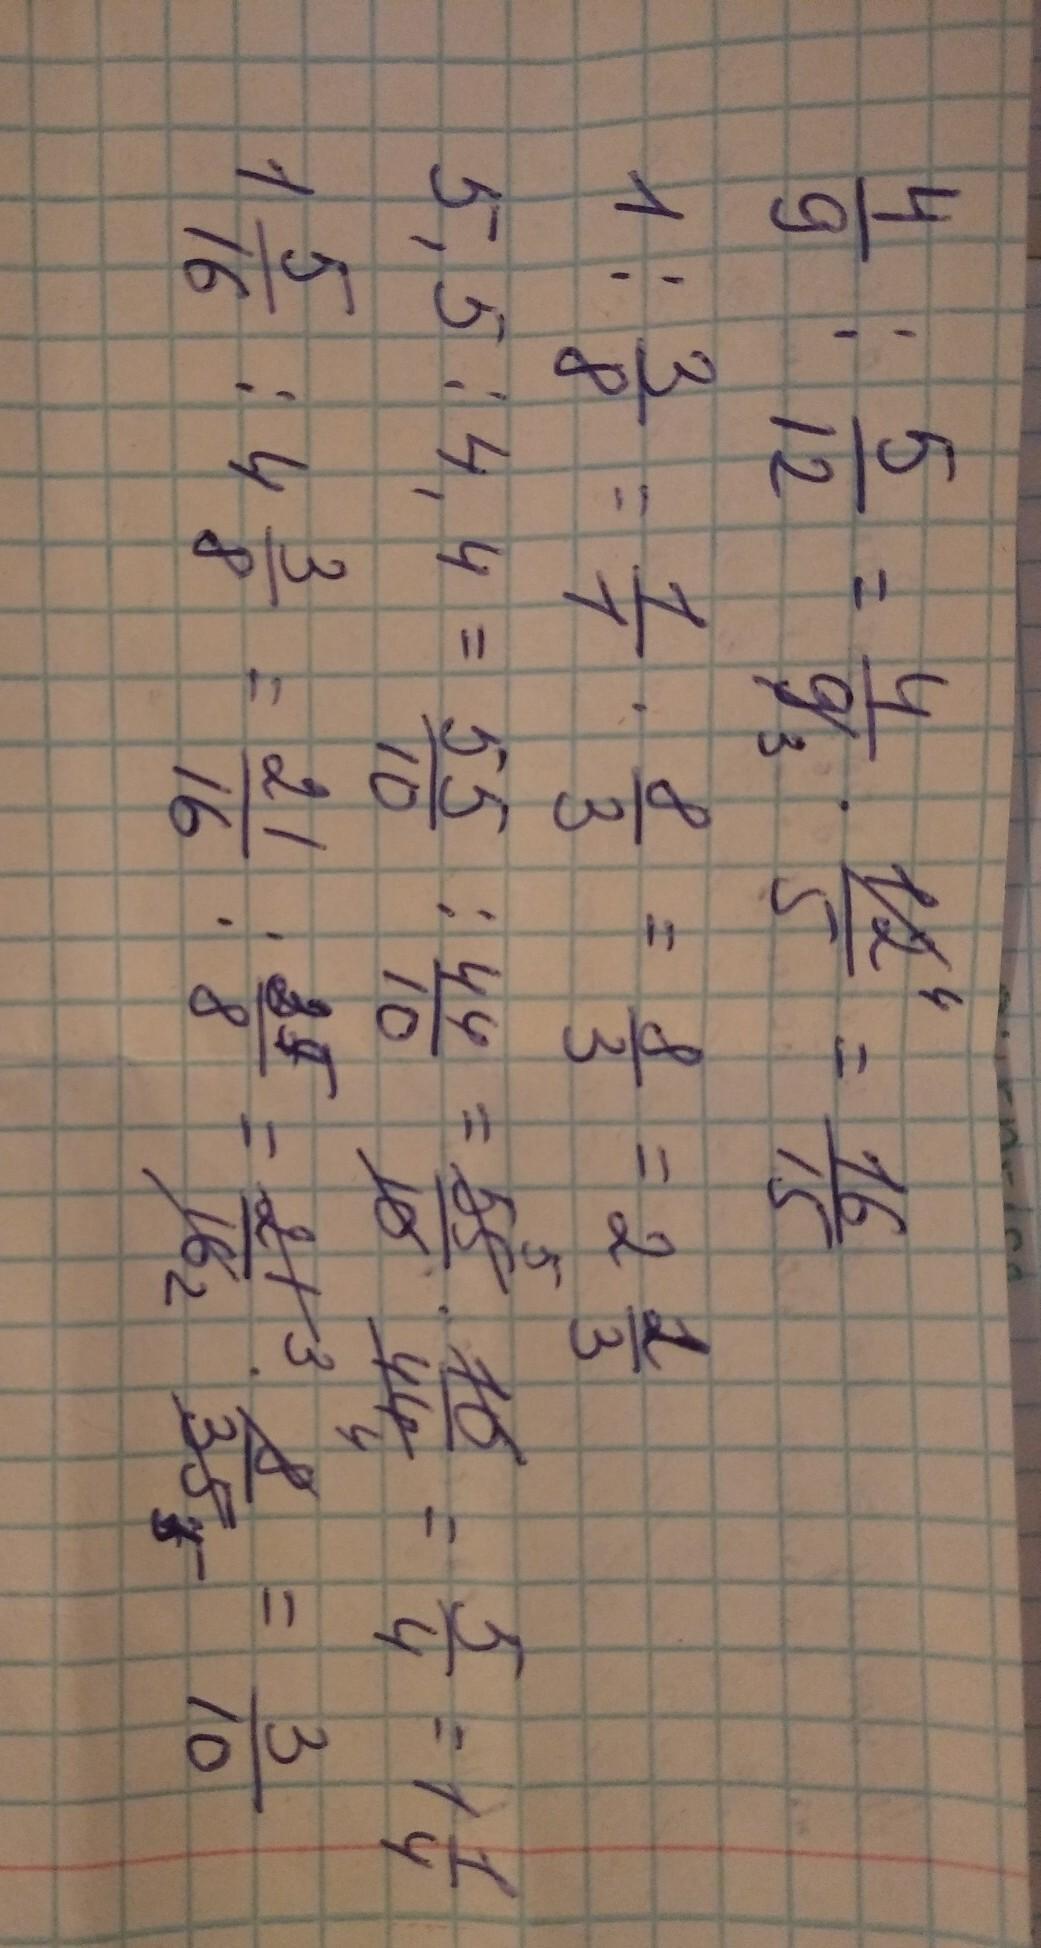 4/9 : 5/12 = 4/9 3 · 12/5 4 = 16/15
1 : 3/8 = 1/1 · 8/3 = 8/3 = 2 2/3
5,5 : 4,4 = 55/10 : 44/10 = 55/10 5 · 10/44 4 = 5/4 = 1 1/4
1 5/16 : 4 3/8 = 21/16 : 35/8 = 21/16 3 2 · 8/35 5 = 3/10